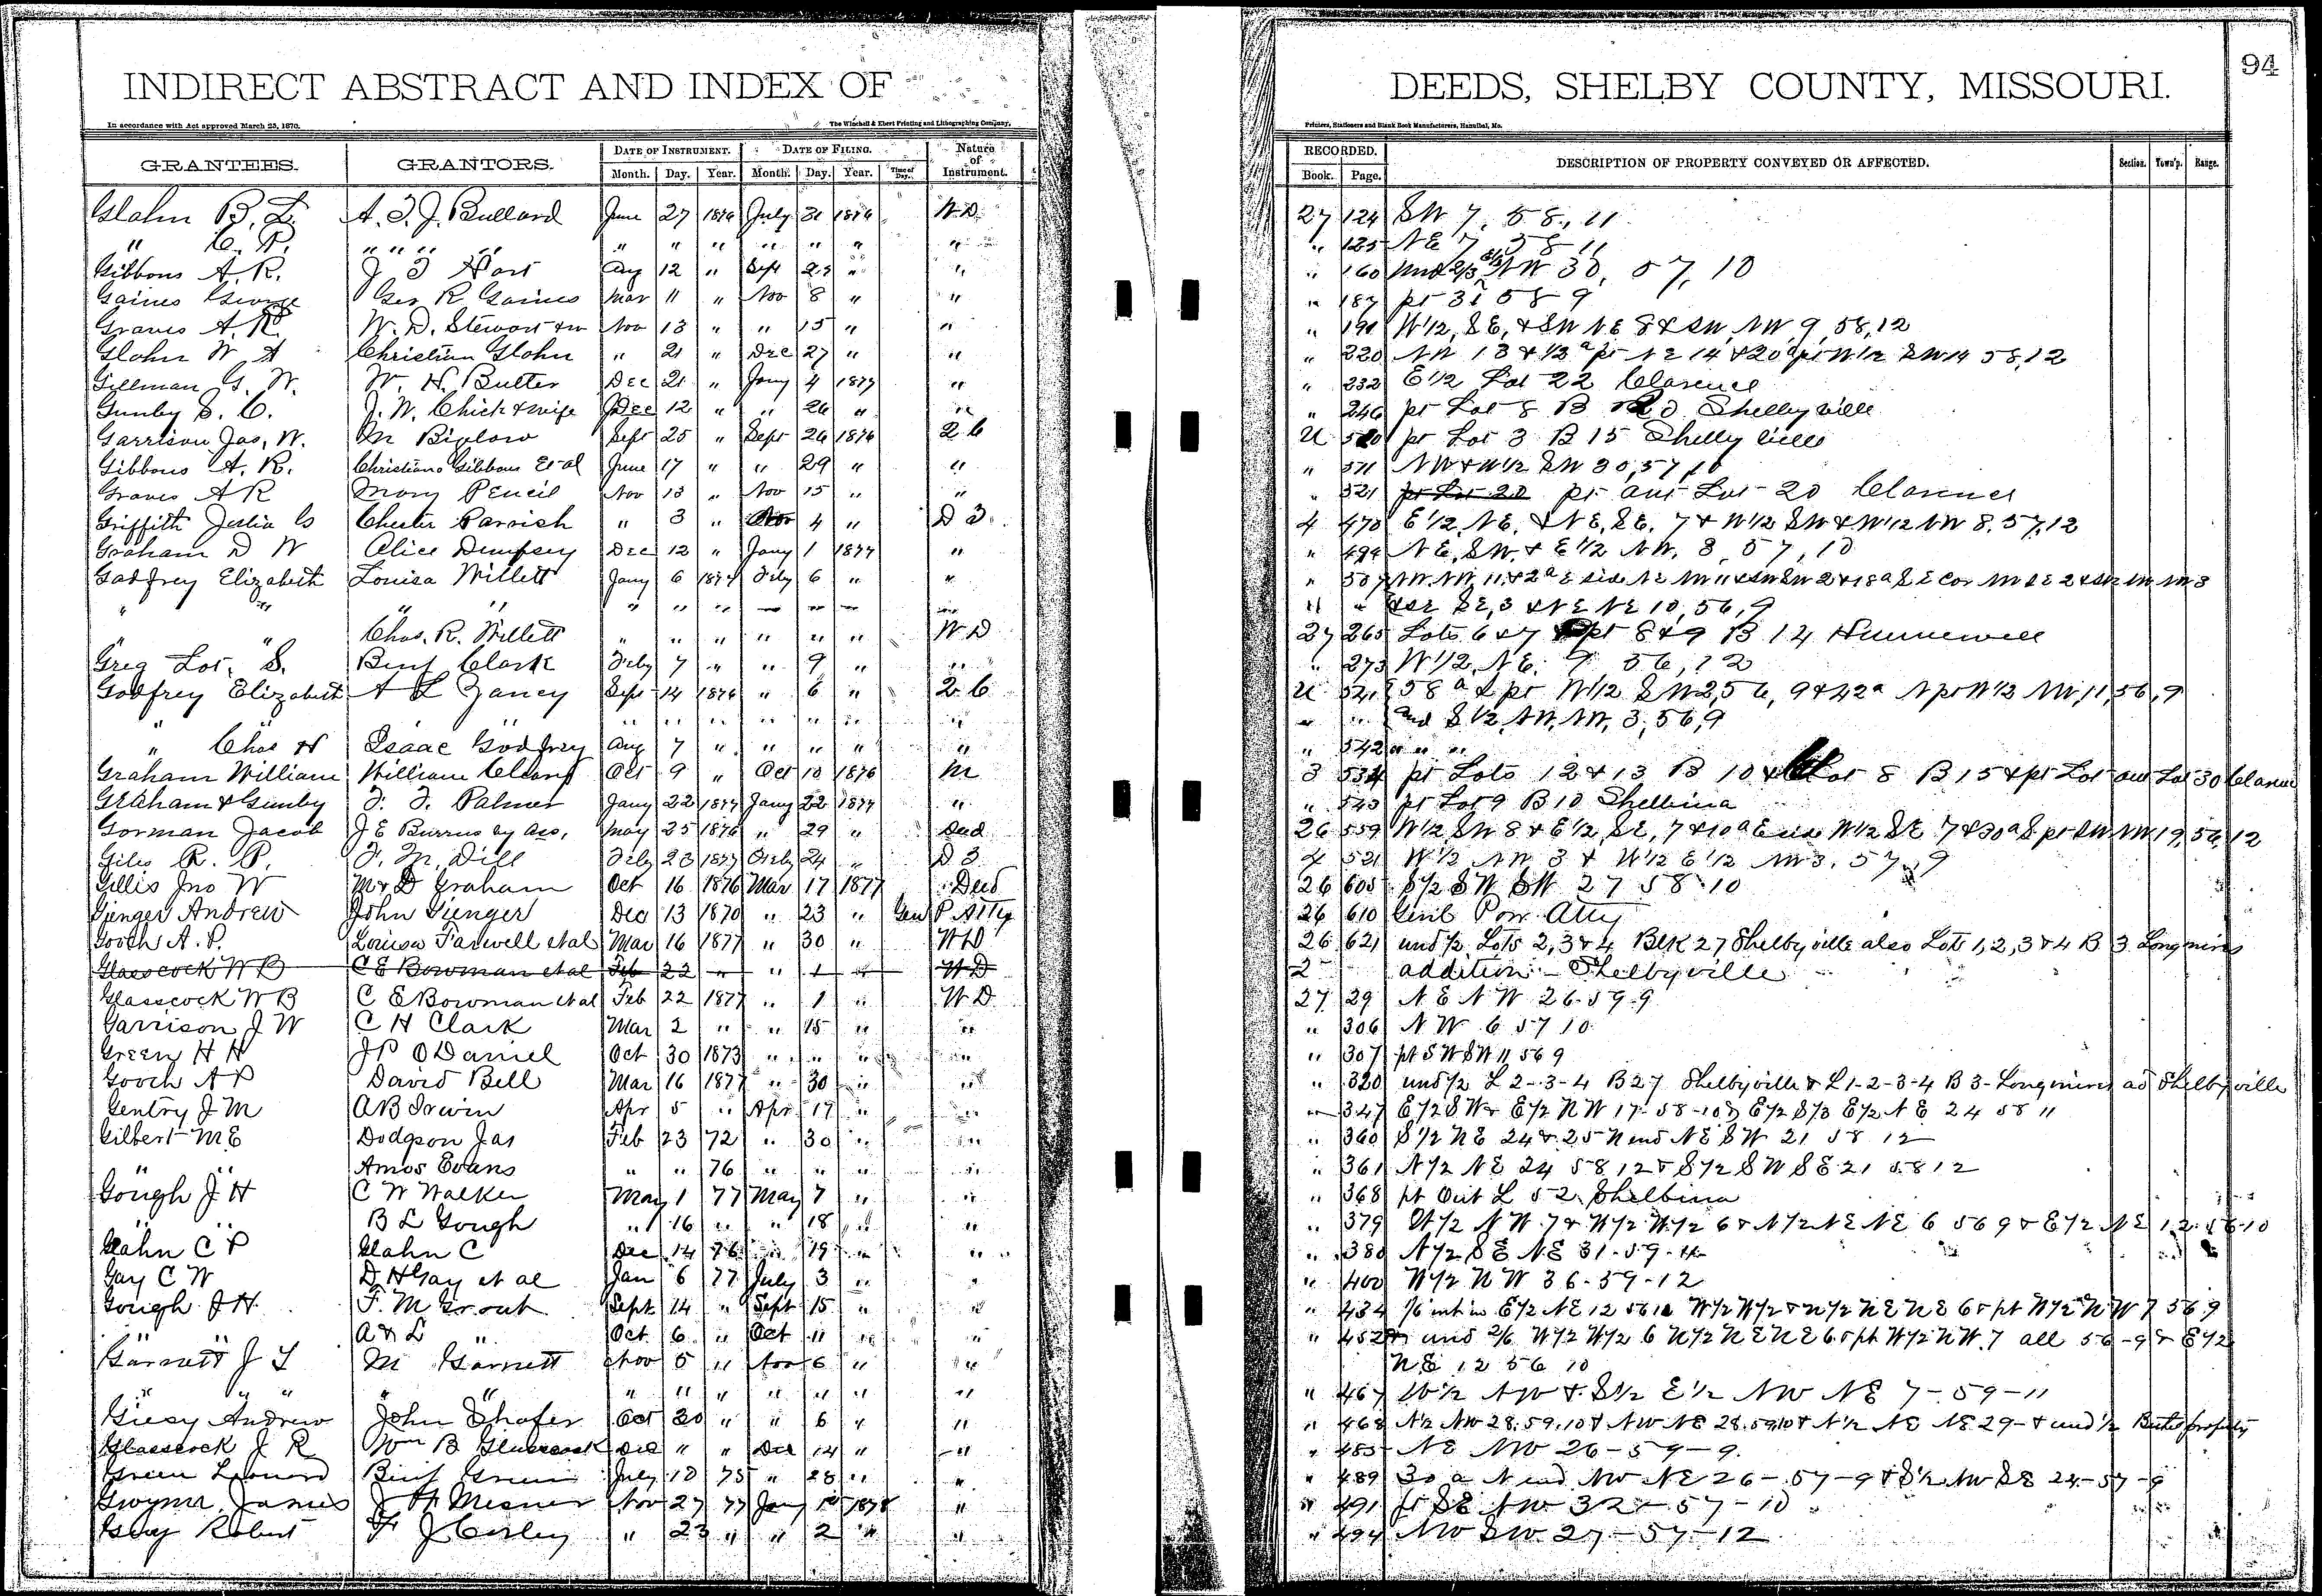 94
INDIRECT ABSTRACT AND INDEX OF DEEDS, SHELBY COUNTY, MISSOURI.
In accordance with Act approved March 25, 1870. The Winchell & Ebert Printing and Lithographing Company, Printers, Stationers and Blank Book Manufacturers, Hannibal, Mo.
GRANTEES. GRANTORS. DATE OF INSTRUMENT. DATE OF FILING. Nature of Instrument. RECORDED. DESCRIPTION OF PROPERTY CONVEYED OR AFFECTED. Section. Town'p. Range.
Month. Day. Year. Month. Day. Year. Time of Day. Book. Page.
Glahn B. L. A. T. J. Bullard June 27 1876 July 31 1876 W D 27 124 SW 7, 58, 11
" C. P. " " " " " " " " " " " " 125 NE 7 58 11
Gibbons A. R. J T Hart Aug 12 " Sept 23 " " " 160 und 2/3 NW 30, 57, 10
Gaines George Geo R. Gaines Mar 11 " Nov 8 " " " 187 pt 31 58 9
Graves A. R. W. D. Stewart & w Nov 13 " " 15 " " " 191 W 1/2, S E, & SW NE 8 & SW, NW, 9, 58, 12
Glahn W A Christian Glahn " 21 " Dec 27 " " " 220 NW 13 & 1/3 a pt NE 14 & 20 a pt W 1/2 SW 14 58, 12
Gillman G. W. W. H. Butler Dec 21 " Jany 4 1877 " " 232 E 1/2 Lot 22 Clarence
Gunby S. C. J. W. Chick & wife Dec 12 " " 26 " " " 246 pt Lot 8 B Shelbyville
Garrison Jas, W. M Biglow Sept 25 " Sept 26 1876 2 6 U 520 pt Lot 3 B 15 Shelbyville
Gibbons A. R. Christiana Gibbons Et al June 17 " " 29 " " " 511 NW & W 1/2 SW 30, 57, 10
Graves A R Mary Pencil Nov 13 " Nov 15 " " " 521 pt Lot 20 pt out Lot 20 Clarence
Griffith Julia Chester Parrish " 3 " Nov 4 " D 3 4 470 E 1/2, NE, & NE, SE, 7 & W 1/2 SW & W 1/2 NW 8, 57, 12
Graham D W Alice Dempsey Dec 12 " Jany 1 1877 " " 494 NE, SW, & E 1/2 NW, 3, 57, 10
Godfrey Elizabeth Louisa Willett Jany 6 1877 Feby 6 " " " 507 NW, NW, 11 & 2 a E side NE NW 11 & SW SW 2 & 18 a SE cor NW SE 2 & SW NW 3
" " " " " " " " " & SE SE, 3 & NE NE 10, 56, 9
" " Chas. R. Willett " " " " " " W D 27 265 Lots 6 & 7 & pt 8 & 9 B 14 Hunnewell
Greg Lot. S. Benj Clark Feby 7 " " 9 " " " 273 W 1/2, NE, 9 56, 12
Godfrey Elizabeth A L Yancy Sept 14 1876 " 6 " 2 6 U 541 58 a & pt W 1/2 SW 2, 56, 9 & 42 a N pt W 1/2 NW, 11, 56, 9
" " " " " " " " " " " and S 1/2, NW, NW, 3, 56, 9
" Chas H Isaac Godfrey Aug 7 " " " " " " 542 " " "
Graham William William Cleary Oct 9 " Oct 10 1876 M 3 534 pt Lots 12 & 13 B 10 & Lot 8 B 15 & pt Lot out Lot 30 Clarence
Graham & Gunby F. F. Palmer Jany 22 1877 Jany 22 1877 " " 543 pt Lot 9 B 10 Shelbina
Gorman Jacob J E Burrus by Ass, May 25 1876 " 29 " Deed 26 559 W 1/2, SW 8 & E 1/2, SE, 7 & 10 a E side W 1/2 SE 7 & 30 a S pt SW NW 19, 56, 12
Giles R. P. F. M. Dill Feby 23 1877 Feby 24 " D 3 4 521 W 1/2 NW 3 & W 1/2 E 1/2 NW 3, 57, 9
Gillis Jno W M & D Graham Oct 16 1876 Mar 17 1877 Deed 26 605 S 1/2 SW SW 27 58 10
Gienger Andrew John Gienger Dec 13 1870 " 23 " Gen P Atty 26 610 Genl Pow Atty
Gooch A. P. Louisa Farwell et al Mar 16 1877 " 30 " W D 26 621 und 1/2 Lots 2, 3 & 4 Blk 27 Shelbyville also Lots 1, 2, 3 & 4 B 3 Longmires
Glasscock W B C E Bowman et al Feb 22 " " 1 " W D 2 addition - Shelbyville
Glasscock W B C E Bowman et al Feb 22 1877 " 1 " W D 27 29 NE NW 26-59-9
Garrison J W C H Clark Mar 2 " " 15 " " " 306 NW 6 57 10
Green H H J P O Daniel Oct 30 1873 " " " " " 307 pt SW SW 11 56 9
Gooch A P David Bell Mar 16 1877 " 30 " " " 320 und 1/2 L 2-3-4 B 27 Shelbyville & L 1-2-3-4 B 3-Longmires ad Shelbyville
Gentry J M A B Irwin Apr 5 " Apr 17 " " " 347 E 1/2 SW & E 1/2 NW 17-58-10 & E 1/2 S 1/3 E 1/2 NE 24 58 11
Gilbert M E Dodgson Jas Feb 23 72 " 30 " " " 360 S 1/2 NE 24 & 25 N end NE SW 21 58 12
" " Amos Evans " " 76 " " " " " 361 N 1/2 NE 24 58 12 & S 1/2 SW SE 21 58 12
Gough J H C W Walker May 1 77 May 7 " " " 368 pt Out L 52 Shelbina
" " B L Gough " 16 " " 18 " " " 379 W 1/2 NW 7 & W 1/2 W 1/2 6 & N 1/2 NE NE 6 56 9 & E 1/2 NE 12 56 10
Glahn C P Glahn C Dec 14 76 " 19 " " " 380 N 1/2 SE NE 31-59-11
Gay C W D H Gay et al Jan 6 77 July 3 " " " 400 W 1/2 NW 36-59-12
Gough J H F. M Grout Sept 14 " Sept 15 " " " 434 1/6 int in E 1/2 NE 12 56 10 W 1/2 W 1/2 & N 1/2 NE NE 6 & pt W 1/2 NW 7 56 9
" " A & L " Oct 6 " Oct 11 " " " 452 und 2/6 W 1/2 W 1/2 6 N 1/2 NE NE 6 & pt W 1/2 NW 7 all 56-9 & E 1/2
Garnett J T M Garnett Nov 5 " Nov 6 " " NE 12 56 10
" " " " " " " " " " " " " 467 W 1/2 NW & S 1/2 E 1/2 NW NE 7-59-11
Giesy Andrew John Shafer Oct 30 " " 6 " " " 468 N 1/2 NW 28.59.10 & NW NE 28.59.10 & N 1/2 NE NE 29- & und 1/2 property
Glasscock J R Wm B Glasscock Dec " " Dec 14 " " " 485 NE NW 26-59-9.
Green Leonard Benj Green July 10 75 " 28 " " " 489 30 a N end NW NE 26-57-9 & S 1/2 NW SE 24-57-9
Gwynn James J H Mesner Nov 27 77 Jany 1st 1878 " " 491 pt SE NW 32-57-10
Guy Robert F J Corley " 23 " " 2 " " " 494 NW SW 27-57-12